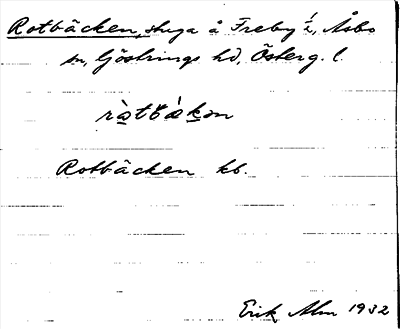 Rotbäcken, stuga å Freby 1/2, Åsbo
sn, Göstrings hd, Österg. l.
ròtbä̀kən
Rotbäcken kb.
Erik Alm 1932